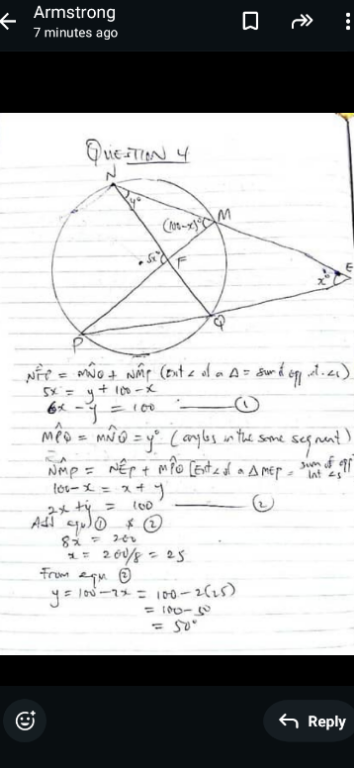 Armstrong
7 minutes ago
QUESTION 4
N
y°
M
(100-x)°
5x°
F
E
x°
Q
P
NF̂P = MN̂Q + NM̂P (Ext < of a Δ = sum of opp int. <s)
5x = y + 100 - x
6x - y = 100 ——— ①
MP̂Q = MN̂Q = y° (angles in the same segment)
NM̂P = NÊP + MP̂Q [Ext < of a Δ MEP = sum of opp int <s
100 - x = x + y
2x + y = 100 ——— ②
Add equ ① & ②
8x = 200
x = 200/8 = 25
From equ ②
y = 100 - 2x = 100 - 2(25)
= 100 - 50
= 50°
Reply